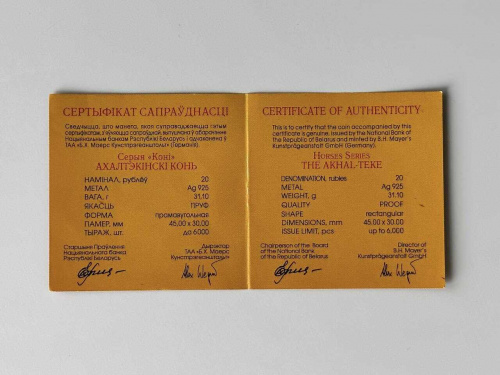 СЕРТЫФІКАТ САПРАЎДНАСЦІ
Сведчыцца, што манета, якая суправаджаецца гэтым
сертыфікатам, з'яўляецца сапраўднай, выпушчана ў абарачэнне
Нацыянальным банкам Рэспублікі Беларусь і адчаканена ў
ТАА «Б.Х. Маерс Кунстпрэгеанштальт» (Германія).
Серыя «Коні»
АХАЛТЭКІНСКІ КОНЬ
НАМІНАЛ, рублёў 20
МЕТАЛ Ag 925
ВАГА, г 31.10
ЯКАСЦЬ ПРУФ
ФОРМА прамавугольная
ПАМЕР, мм 45.00 x 30.00
ТЫРАЖ, шт. да 6000
Старшыня Праўлення
Нацыянальнага банка
Рэспублікі Беларусь
Дырэктар
ТАА «Б.Х. Маерс
Кунстпрэгеанштальт»
CERTIFICATE OF AUTHENTICITY
This is to certify that the coin accompanied by this
certificate is genuine, issued by the National Bank of
the Republic of Belarus and minted by B.H. Mayer's
Kunstprägeanstalt GmbH (Germany).
HORSES SERIES
THE AKHAL-TEKE
DENOMINATION, rubles 20
METAL Ag 925
WEIGHT, g 31.10
QUALITY PROOF
SHAPE rectangular
DIMENSIONS, mm 45.00 x 30.00
ISSUE LIMIT, pcs up to 6,000
Chairperson of the Board
of the National Bank
of the Republic of Belarus
Director of
B.H. Mayer's
Kunstprägeanstalt GmbH